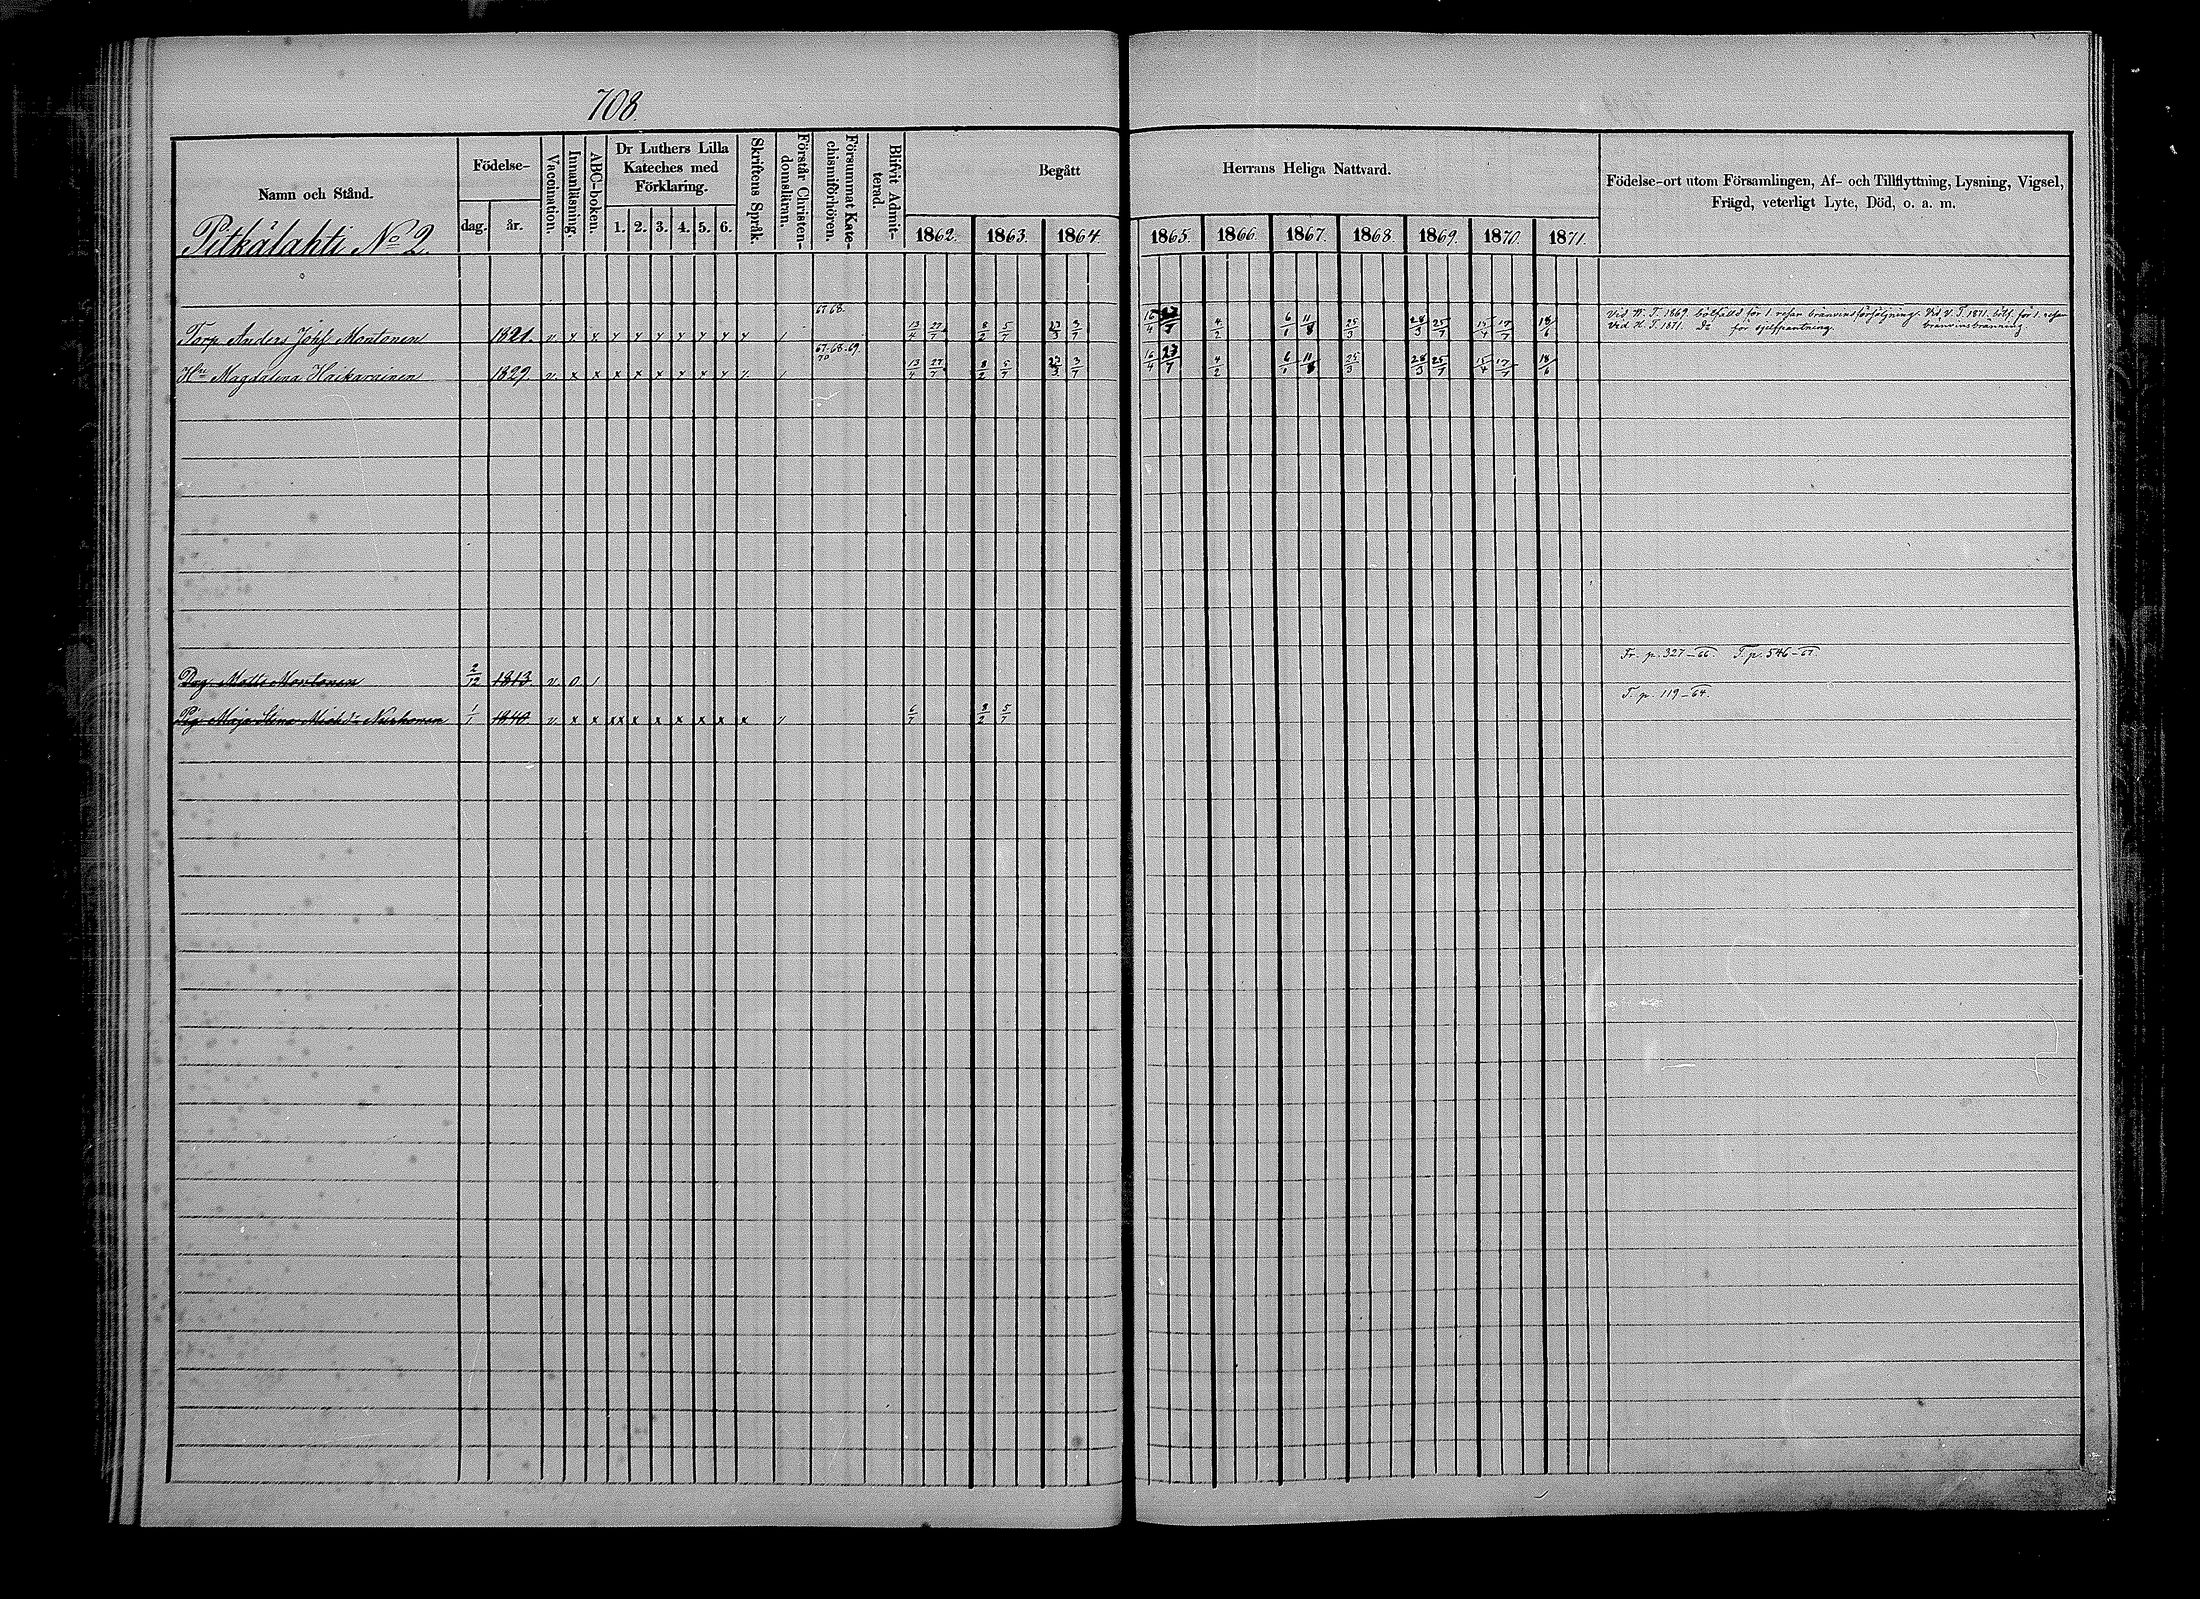 708.
Namn och Stånd. Födelse- dag. år. Vaccination. Innanläsning. ABC-boken. Dr Luthers Lilla Kateches med Förklaring. 1. 2. 3. 4. 5. 6. Skriftens Språk. Förstår Christendomsläran. Försummat Katechismiförhören. Blifvit Admitterad. Begått Herrans Heliga Nattvard. 1862. 1863. 1864. 1865. 1866. 1867. 1868. 1869. 1870. 1871. Födelse-ort utom Församlingen, Af- och Tillflyttning, Lysning, Vigsel, Frägd, veterligt Lyte, Död, o. a. m.
Pitkälahti No 2.
67. 68. Vid W. T. 1869 bötfälld för 1. resan bränvinsförsäljning. Vid V. T. 1871. bötf. för 1. resan
Torp. Anders Johs Montonen 1821. v. x x x x x x x x x / 13/4 27/7 8/2 5/7 27/3 3/7 16/4 23/7 4/2 6/1 11/8 25/3 28/3 25/7 15/4 17/7 18/6 Vid H. T. 1871. Do för sjelfpantning. bränvinsbränning
67. 68. 69. 70
Hu Magdalena Haikarainen 1829. v. x x x x x x x x x / 13/4 27/7 8/2 5/7 27/3 3/7 16/4 23/7 4/2 6/1 11/8 25/3 28/3 25/7 15/4 17/7 18/6
Fr. p. 327-66. T. p. 546-67.
Drg. Matts Montonen 2/12 1813. v. 0 /
T. p. 119-64.
Pig. Maja Stina Michsdr 1/1 1840. v. x x xx x x x x x x / 6/7 8/2 5/7